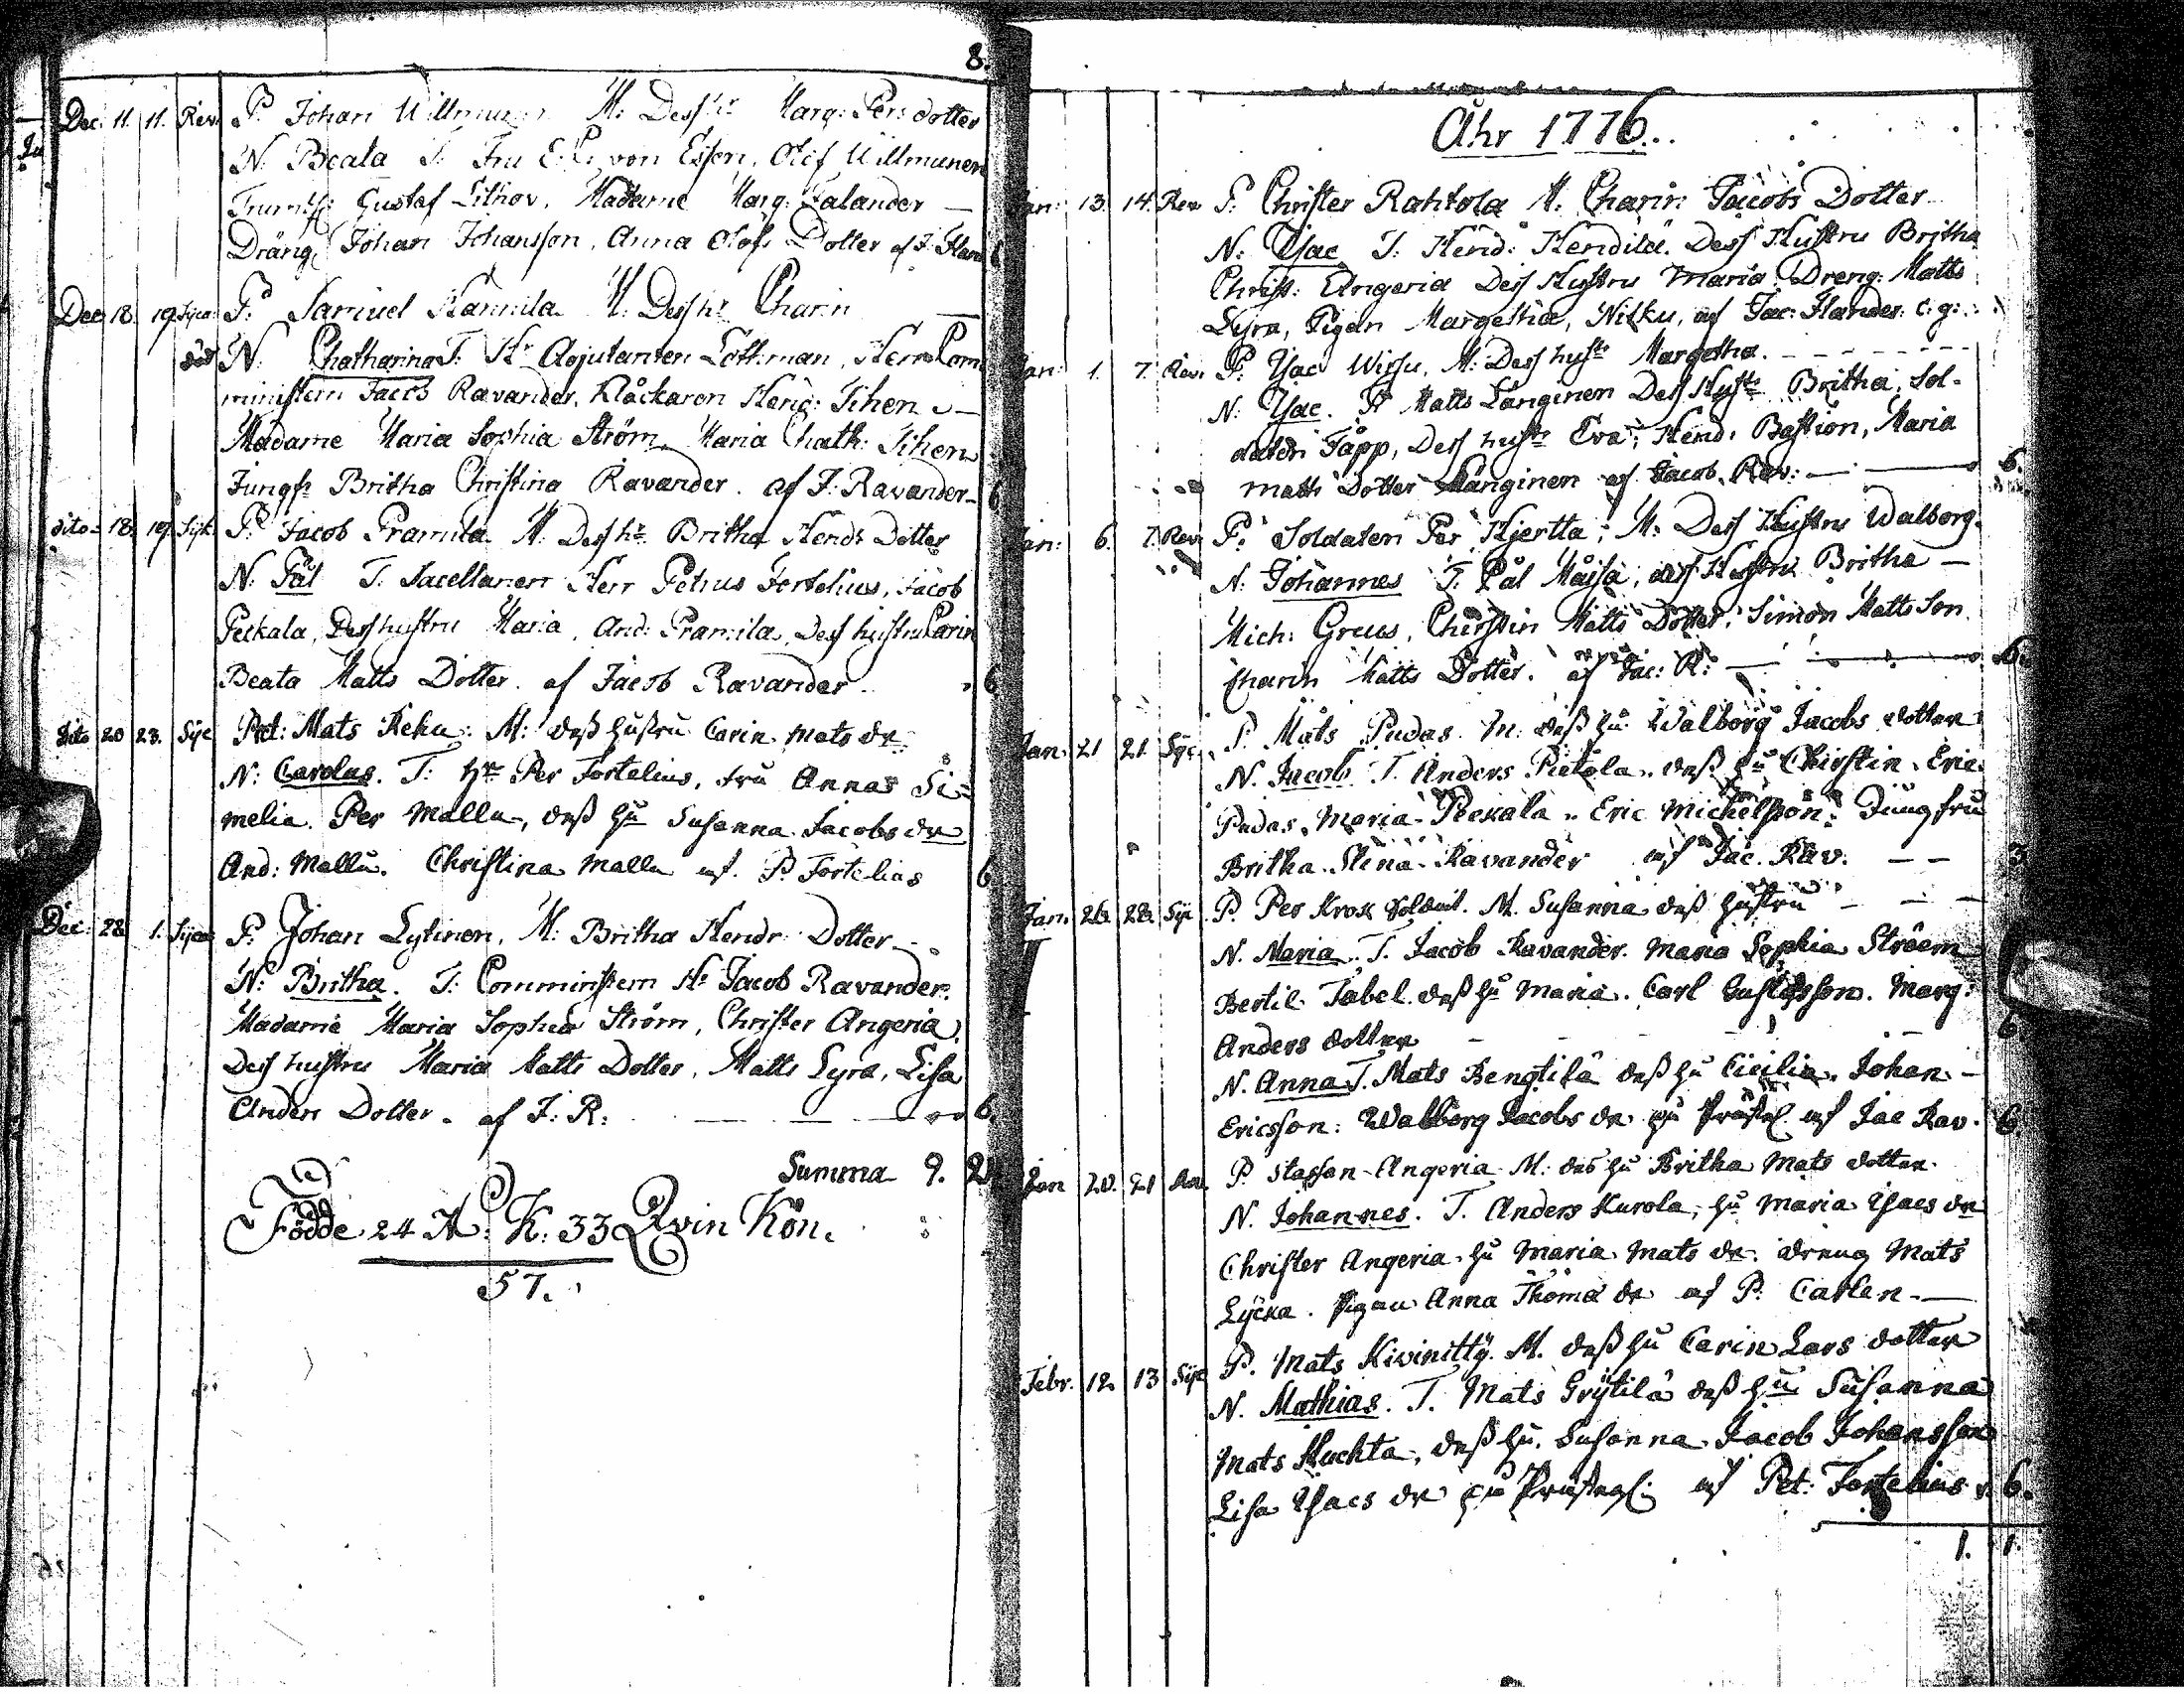 8.
Dec. 11. 11. Rev. P. Johan Willmunen M: Dess hr Marg: Pers dotter
N: Beata T: Fru von Essen, Olof Willmunen
Gustaf Lithov, Madame Marg: Falander —
Dräng Johan Johansson, Anna Olofs Dotter af J: Fland 6
Dec. 18. 19. Syca P. Samuel Kannila M: Dess hr Charin
död N: Chatharina T: Hr Adjutanten Lothman, Herr Com
ministern Jacob Ravander, Klåckaren Henic: Tihen —
Madame Maria Sophia Ström, Maria Chath: Tihen
Jungfr Britha Christina Ravander. af J: Ravander 6
dito 18. 19. Syk. P. Jacob Pramila M: Dess hr Britha Hendr Dotter
N: Pål T: Sacellanen Herr Petrus Fortelius, Jacob
Peckala, Dess hustru Maria, And: Pramila, Dess hustru Carin
Beata Matts Dotter. af Jacob Ravander. 6
dito 20 23. Syc Pet: Mats Keku. M: dess hustru Carin Mats dr
N: Carolus. T: Hr Per Fortelius, fru Anna Si-
melia. Per Mallu, dess hu Susanna Jacobs dr
And: Mallu. Christina Mallu af. P. Fortelius 6
Dec: 28 1. Syca P: Johan Lytinen, M: Britha Hendr: Dotter
N: Britha. T: Comministern Hr Jacob Ravander.
Madame Maria Sophia Ström, Christer Angeria,
Dess hustru Maria Matts Dotter, Matts Lyra, Lisa
Anders Dotter. af J: R: 6.
Summa 9. 21
Födde 24 M: K: 33 Qvin Kön.
57.
Åhr 1776.
Jan: 13. 14. Rev P: Christer Rahtola M: Charin Jacobs Dotter
N: Isac T: Hend: Hendila. Dess Hustru Britha
Christ: Angeria Dess Hustru Maria Dreng: Matts
Lyra, Pigan Margetha, Nitku, af Jac: Flander: c:g:
Jan: 1. 7. Rev. P: Isac Wirsu, M: Dess hustr Margetha.
N: Isac. T: Matts Länginen Dess Hustr Britha, Sol-
daten Tapp, Dess hustr Eva, Hend: Bastion, Maria
Matts Dotter Länginen af Jacob Rav: — 6.
Jan: 6. 7. Rev P: Soldaten Per Hjertta; M: Dess Hustru Walborg.
N: Johannes T: Pål Måisa, dess Hustru Britha —
Mich: Greus, Cherstin Matts Dotter, Simon Matts Son
Charin Matts Dotter. af Jac: R: — 6.
Jan. 21 21. Syc. P. Mats Pudas. M: dess hu: Walborg Jacobs dotter
N. Jacob T. Anders Pietola, dess hu Chirstin. Eric
Pudas, Maria Peekala, Eric Michelsson. Jungfru
Britha Stina Ravander af Jac. Rav. — — 3
Jan. 26. 28. Syc P. Per Krok Soldat. M. Susanna dess hustru — — —
N. Maria. T. Jacob Ravander. Maria Sophia Ström
Bertil Tabel. dess hu Maria. Carl Gustafsson. Marg:
Anders dotter 6
N. Anna T. Mats Bengtilä dess hu Cicilia. Johan
Ericsson. Walborg Jacobs dr af Jac Rav. 6.
Jan 20. 21 P. Staffan Angeria M: des hu Britha Mats dotter
N. Johannes. T. Anders Kurola, hu Maria Isacs dr
Christer Angeria hu Maria Mats dr. dreng Mats
Lycka. Pigan Anna Thoma dr af P: Carlen —
Febr. 12. 13 Syc P. Mats Kiviniitty. M. dess hu Carin Lars dotter
N. Mathias. T. Mats Grytilä dess hu Susanna
Mats Kuchta, dess hu. Susanna Jacob Johansson
Lisa Isacs dr af Pet: Fortelius 6.
1. 1.